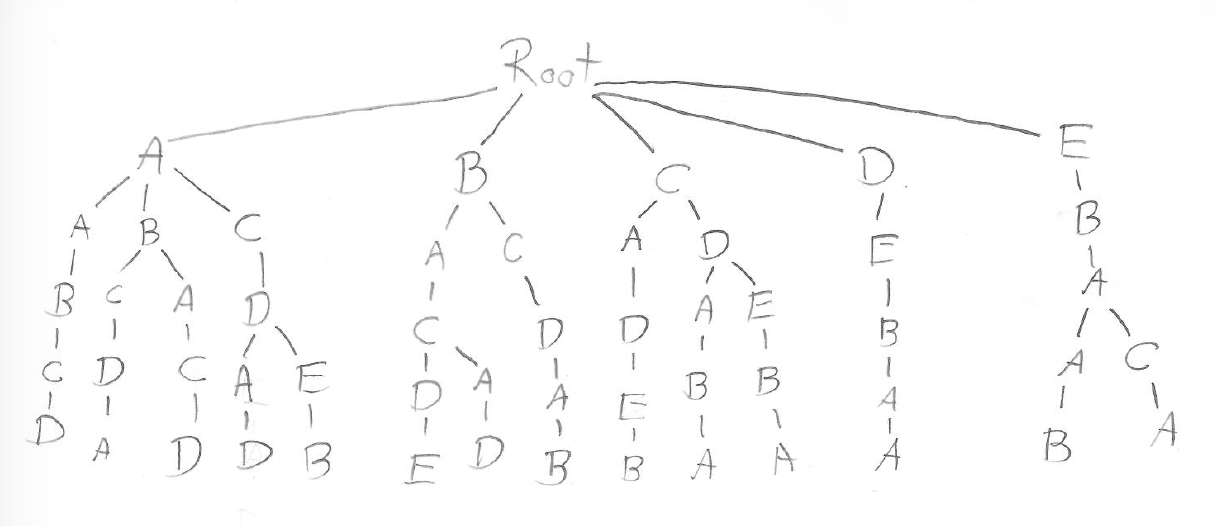 Root
A B C D E
A B C A C A D E B
B C A D C D D A E B A
C D C A E D A A E B B A A C
D A D D B E D B B A A A B A